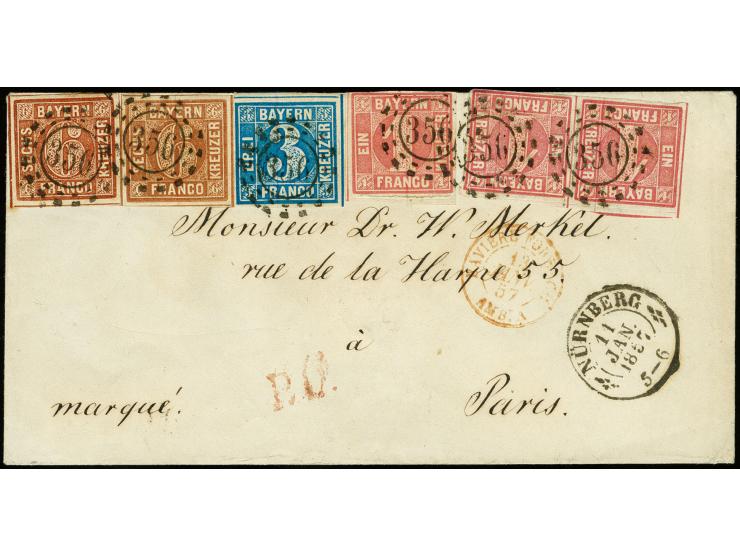 BAYERN SECHS KREUZER FRANCO 6 356
BAYERN KREUZER FRANCO 6 356
BAYERN DREI KREUZER FRANCO 3
BAYERN EIN KREUZER FRANCO 356
FRANCO KREUZER BAYERN 356
EIN FRANCO KREUZER BAYERN 356
Monsieur Dr. W. Merkel.
rue de la Harpe 55.
à
Paris.
marqué.
P.D.
AMB. A
NÜRNBERG
11
JAN.
1857
5-6